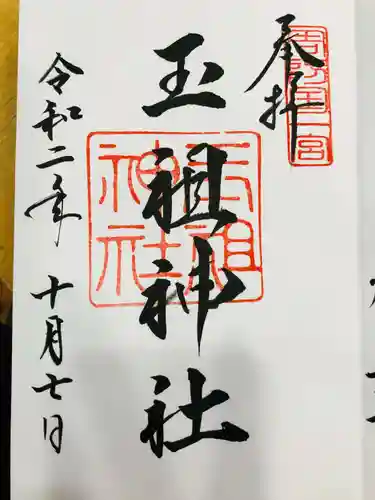 奉拝
周防國一宮
玉祖神社
玉祖神社
令和二年 十月七日